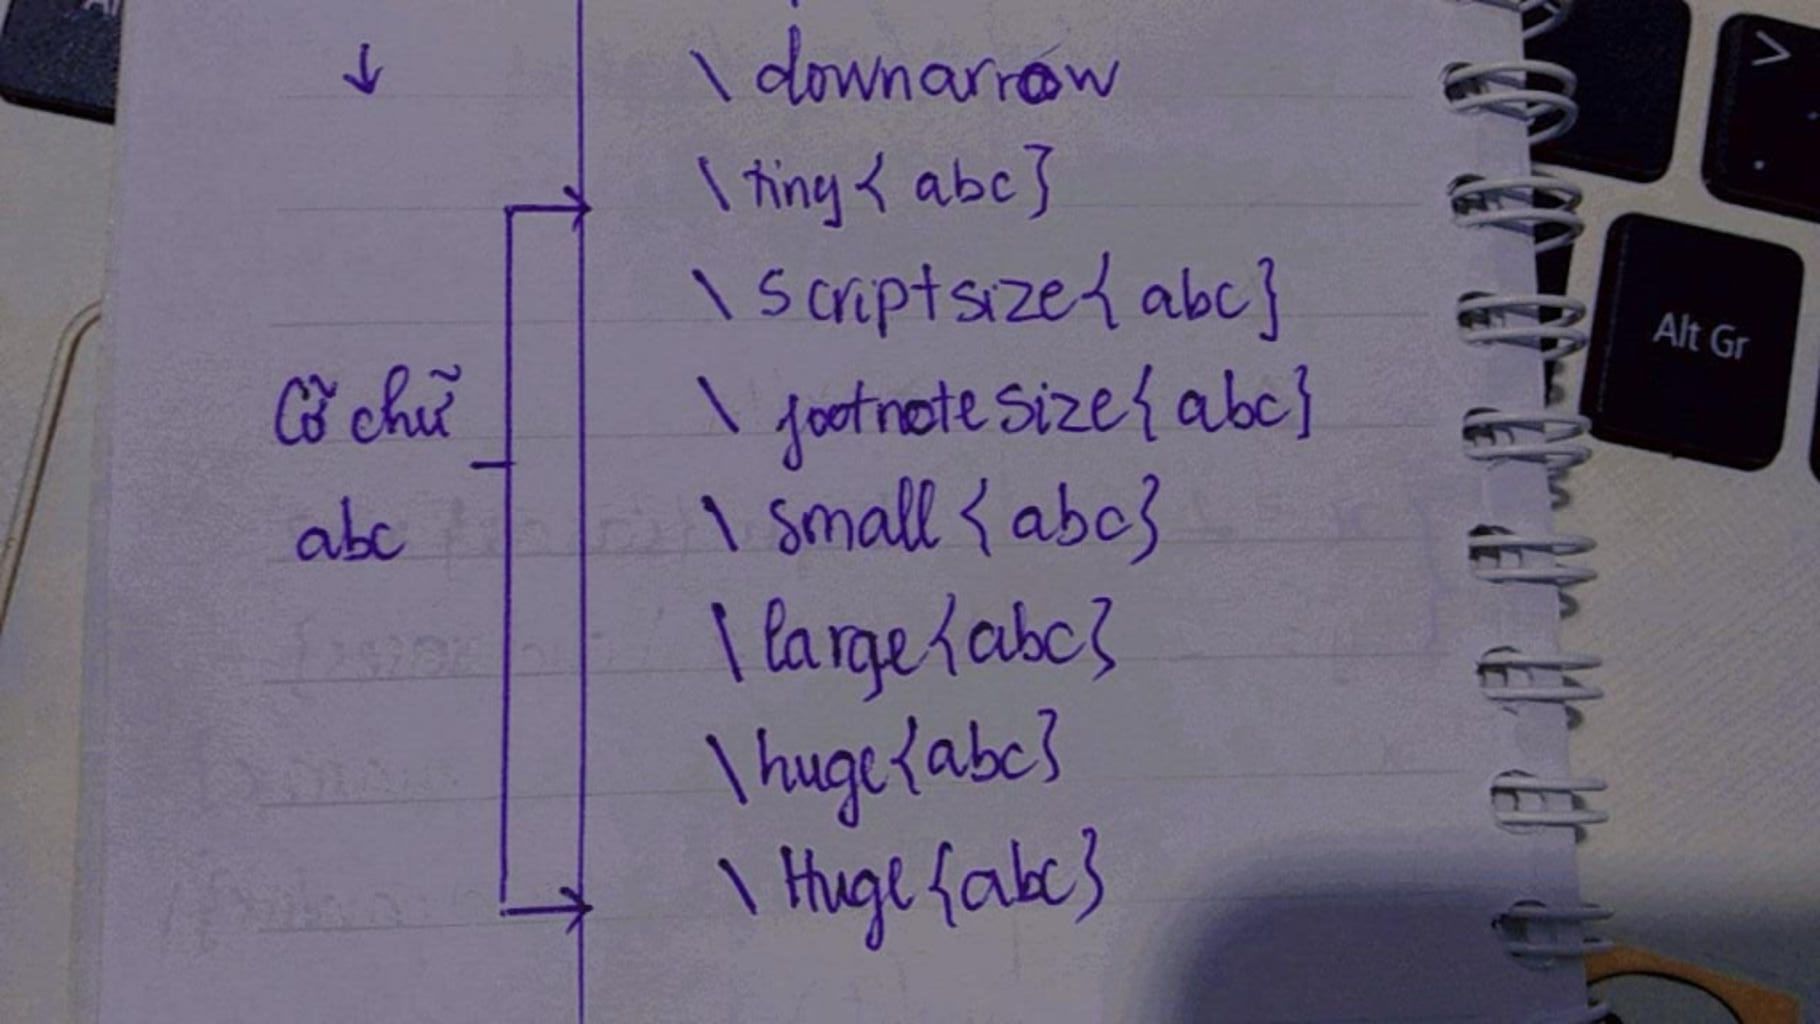 ↓ \downarrow
\tiny{abc}
\scriptsize{abc}
Cỡ chữ \footnotesize{abc}
abc \small{abc}
\large{abc}
\huge{abc}
\Huge{abc}
>
.
Alt Gr